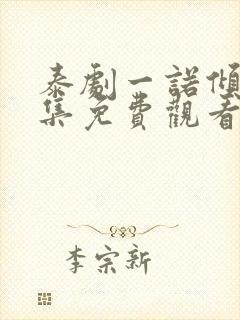 泰劇一諾傾
集免費觀看
李宗新